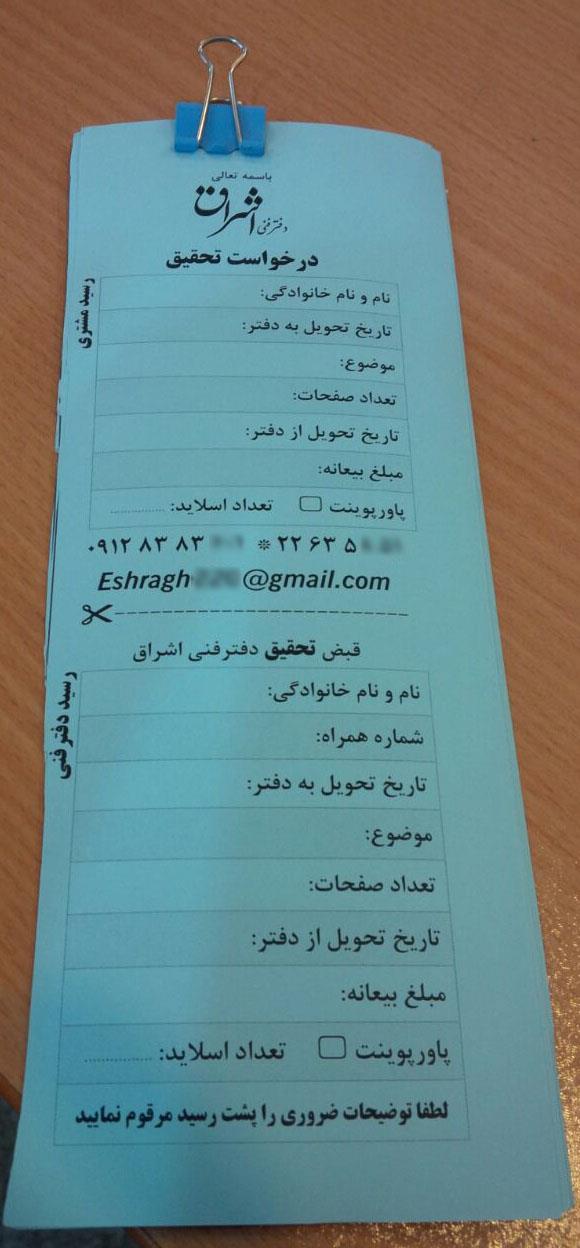 باسمه تعالی
دفتر فنی اشراق
درخواست تحقیق
رسید مشتری
نام و نام خانوادگی:
تاریخ تحویل به دفتر:
موضوع:
تعداد صفحات:
تاریخ تحویل از دفتر:
مبلغ بیعانه:
پاورپوینت تعداد اسلاید: ..............
۰۹۱۲ ۸۳ ۸۳ * ۲۲ ۶۳ ۵
Eshragh @gmail.com
قبض تحقیق دفترفنی اشراق
رسید دفتر فنی
نام و نام خانوادگی:
شماره همراه:
تاریخ تحویل به دفتر:
موضوع:
تعداد صفحات:
تاریخ تحویل از دفتر:
مبلغ بیعانه:
پاورپوینت تعداد اسلاید: ................
لطفا توضیحات ضروری را پشت رسید مرقوم نمایید